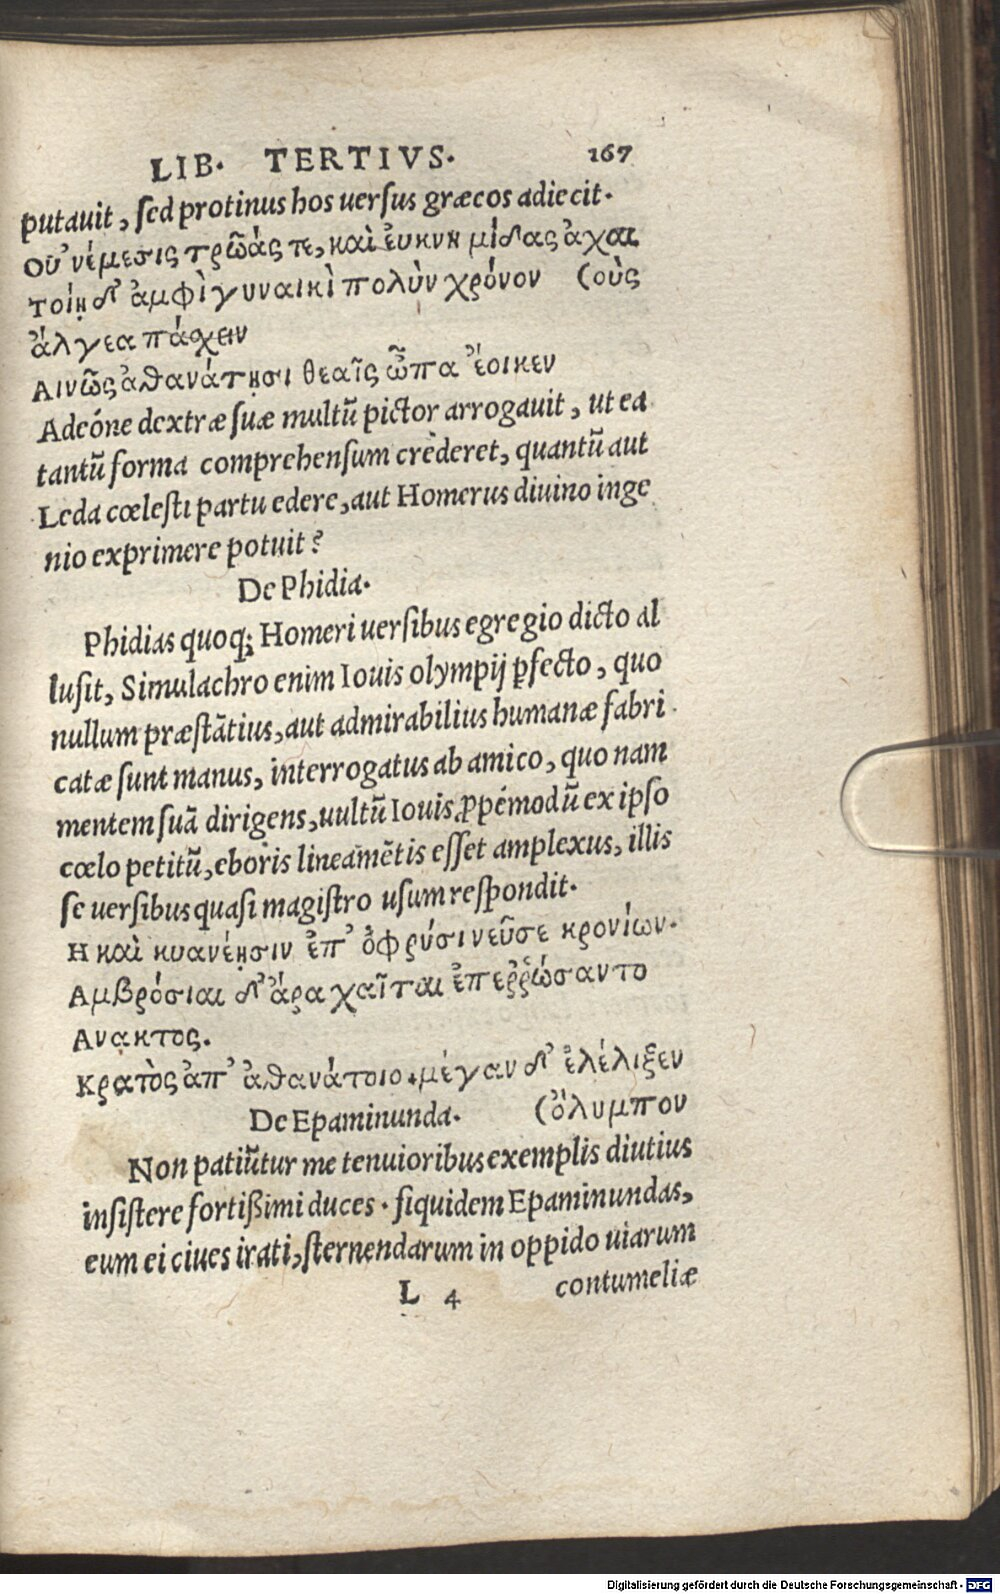 LIB. TERTIVS. 167
putauit, sed protinus hos uersus græcos adiecit.
Οὐ νέμεσις τρῶάς τε, καὶ ἐυκνη μίδας ἀχαι
τοίῃ δ' ἀμφὶ γυναικὶ πολὺν χρόνον (οὺς
ἄλγεα πάχειν
Αινῶς ἀθανάτησι θεαῖς ὦπα ἔοικεν
Adeóne dextræ suæ multū pictor arrogauit, ut ea
tantū forma comprehensum crederet, quantū aut
Leda cœlesti partu edere, aut Homerus diuino inge
nio exprimere potuit?
De Phidia.
Phidias quoq; Homeri uersibus egregio dicto al
lusit, Simulachro enim Iouis olympij ꝑfecto, quo
nullum præstātius, aut admirabilius humanæ fabri
catæ sunt manus, interrogatus ab amico, quo nam
mentem suā dirigens, uultū Iouis ꝓpémodū ex ipso
cœlo petitū, eboris lineamētis esset amplexus, illis
se uersibus quasi magistro usum respondit.
Η καὶ κυανέῃσιν ἐπ' ὀφρύσι νεῦσε κρονίων.
Αμβρόσιαι δ' ἄρα χαῖται ἐπεῤῥώσαντο
Ανακτος.
Κρατὸς ἀπ' ἀθανάτοιο. μέγαν δ' ἐλέλιξεν
De Epaminunda. (ὄλυμπον
Non patiūtur me tenuioribus exemplis diutius
insistere fortißimi duces. siquidem Epaminundas,
eum ei ciues irati, sternendarum in oppido uiarum
L 4 contumeliæ
Digitalisierung gefördert durch die Deutsche Forschungsgemeinschaft - DFG